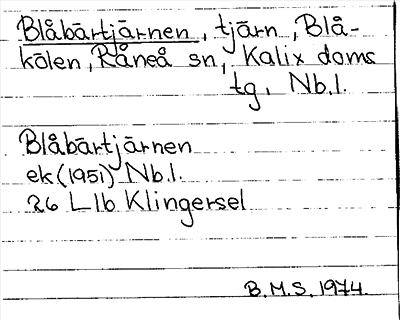 Blåbärtjärnen, tjärn, Blå-
kölen, Råneå sn, Kalix doms
tg, Nb.l.
Blåbärtjärnen
ek (1951) Nb.l.
26 L lb Klingersel
B.M.S. 1974.